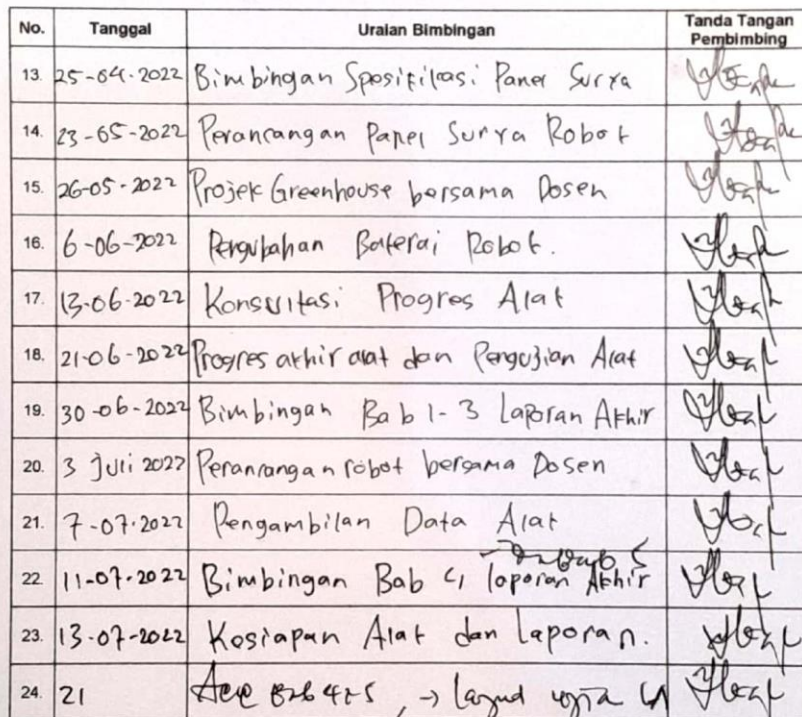 No. Tanggal Uraian Bimbingan Tanda Tangan Pembimbing
13. 25-04-2022 Bimbingan Spesifikasi Panel Surya
14. 23-05-2022 Perancangan Panel Surya Robot
15. 26-05-2022 Projek Greenhouse bersama Dosen
16. 6-06-2022 Pengubahan Baterai Robot.
17. 13-06-2022 Konsultasi Progres Alat
18. 21-06-2022 Progres akhir alat dan Pengujian Alat
19. 30-06-2022 Bimbingan Bab 1-3 Laporan Akhir
20. 3 Juli 2022 Perancangan robot bersama Dosen
21. 7-07-2022 Pengambilan Data Alat
22. 11-07-2022 Bimbingan Bab 4 laporan Akhir
23. 13-07-2022 Kesiapan Alat dan Laporan.
24. 21 Acc Bab 4 & 5, → lanjut